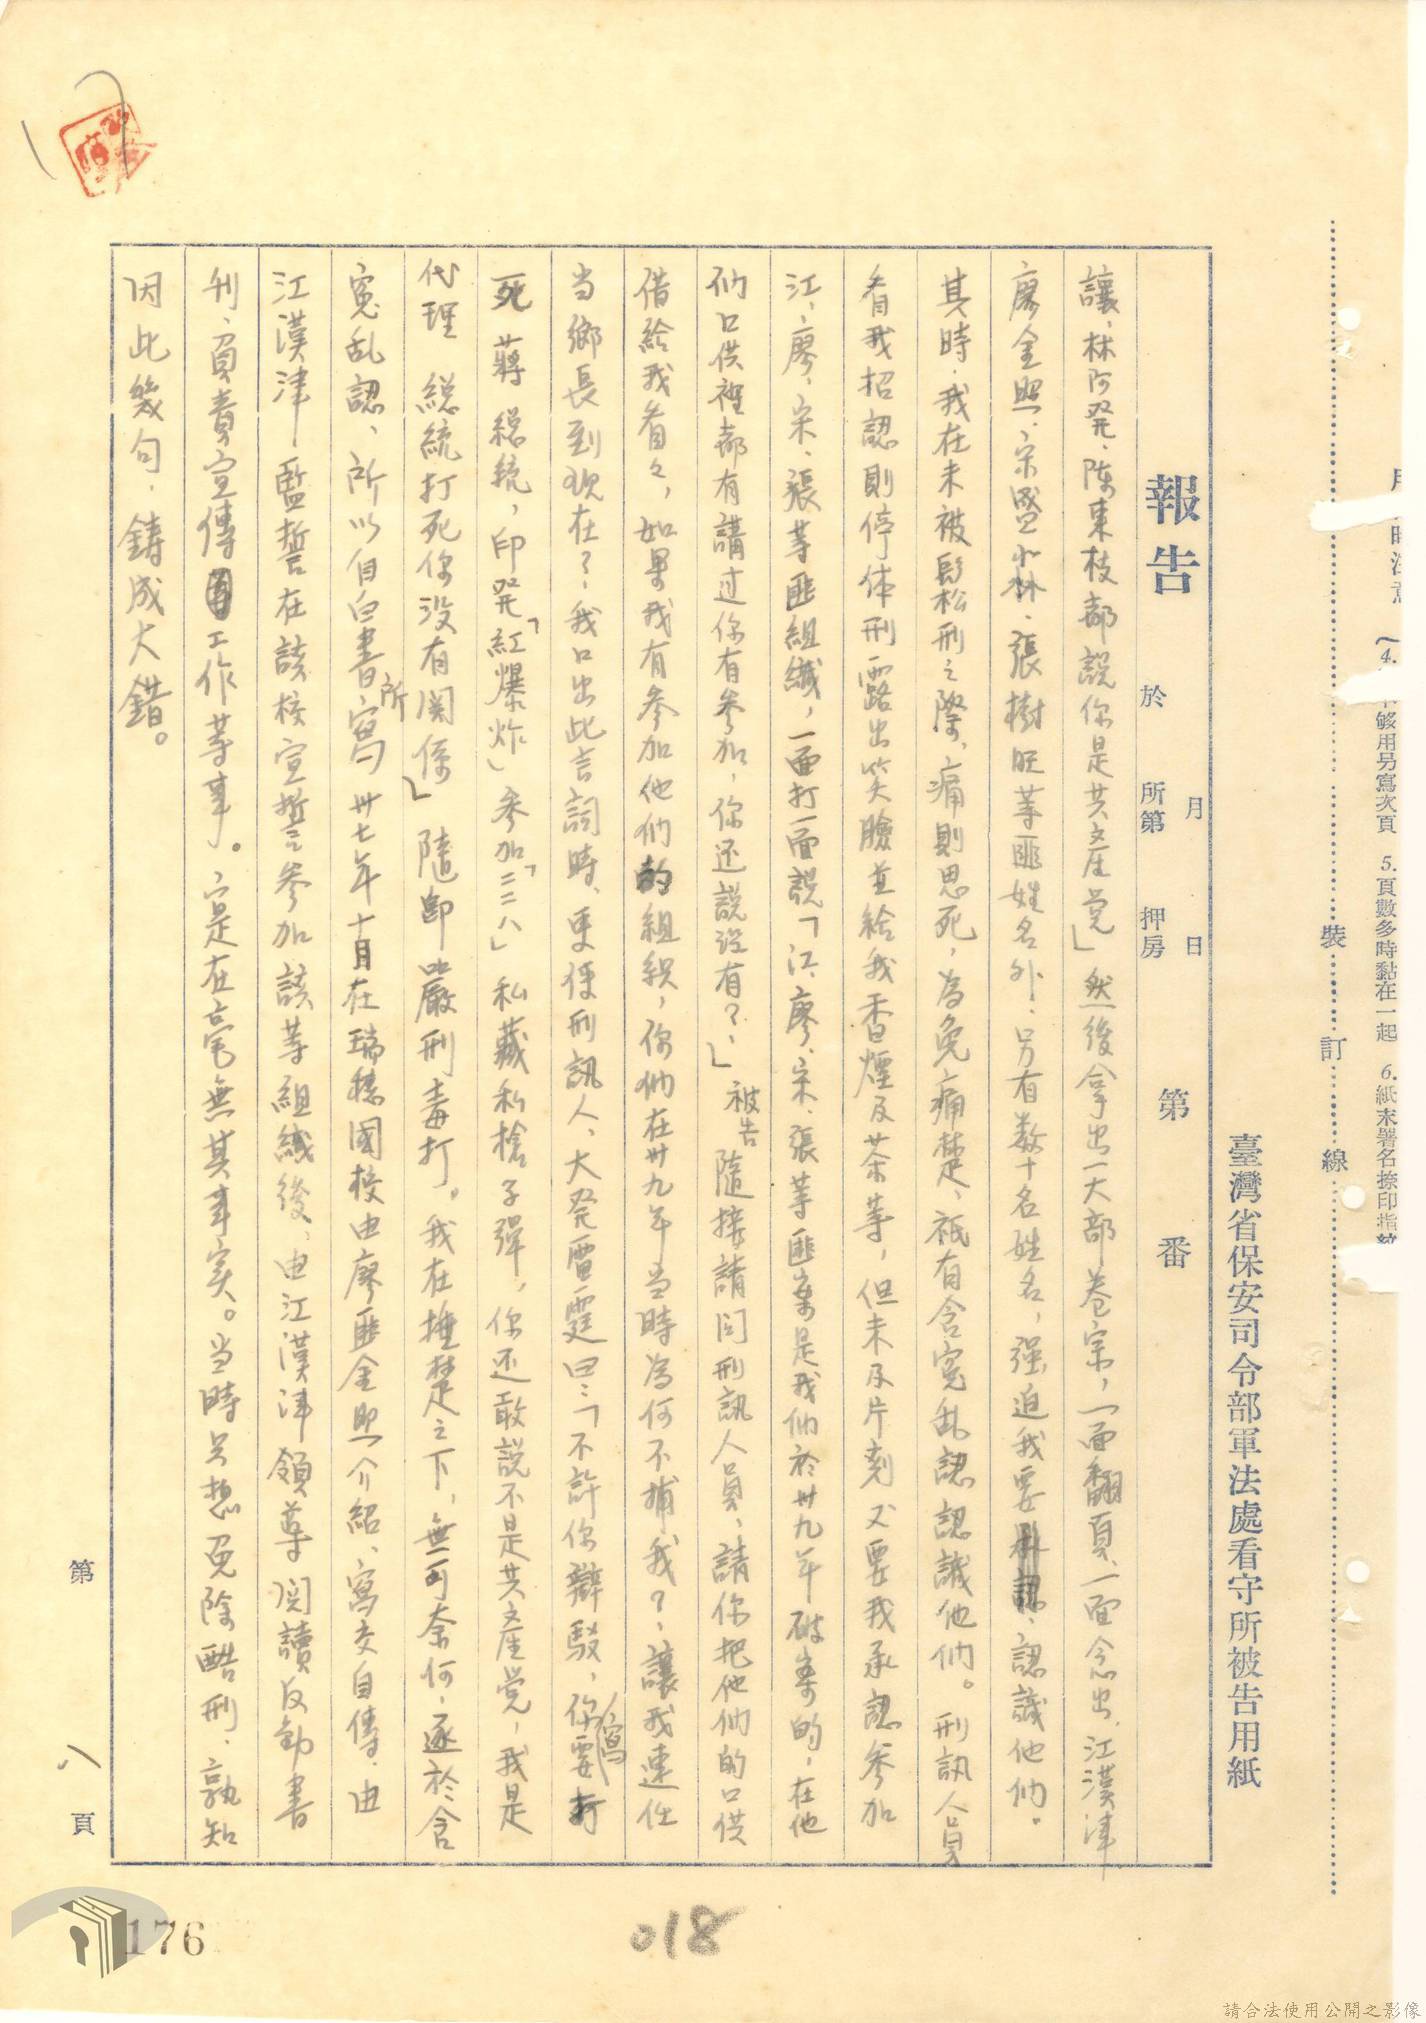 用
時注意
4.
不够用另寫次頁
5.頁數多時黏在一起
6.紙末署名捺印指紋
裝訂線
臺灣省保安司令部軍法處看守所被告用紙
報告
於
所第
押房
月
日
第番
讓、林阿発、陳東枝都説你是共产党」然後拿出一大部卷宗，一面翻頁、一面念出、江漢津
廖金照、宋盛淼、張樹旺等匪姓名外、另有数十名姓名，强迫我要承認、認識他们。
其時，我在未被鬆刑之際、痛則思死，為免痛楚、祇有含寃乱認認識他们。刑訊人員
看我招認則停体刑露出笑臉並給我香煙及茶等，但未及片刻又要我承認參加
江、廖、宋、張等匪組織，一面打一面説「江、廖、宋、張等匪案是我们於卅九年破案的，在他
们口供裡都有講过你有參加，你还説沒有？」被告隨接請问刑訊人員，請你把他们的口供
借給我看々，如果我有參加他们的組织，你们在卅九年当時為何不捕我？讓我連任
当鄉長到現在？我口出此言詞時、更使刑訊人、大発雷霆曰：「不許你辯駁，你要寫打
死蔣總統，印発「紅爆炸」參加「二二八」私藏私槍子彈，你还敢説不是共产党，我是
代理總統打死你没有関係」隨即嚴刑毒打。我在捶楚之下，無可奈何，逐於含
寃乱認、所以自白書所寫卅七年十月在瑞穗國校由廖匪金照介紹、寫交自傳、由
江漢津監誓在該校宣誓參加該等組織後、由江漢津領導阅讀反動書
刊、負責宣傳工作等事。实是在毫無其事实。当時只想免除酷刑、孰知
因此幾句，鋳成大錯。
第八頁
176
018
請合法使用公開之影像